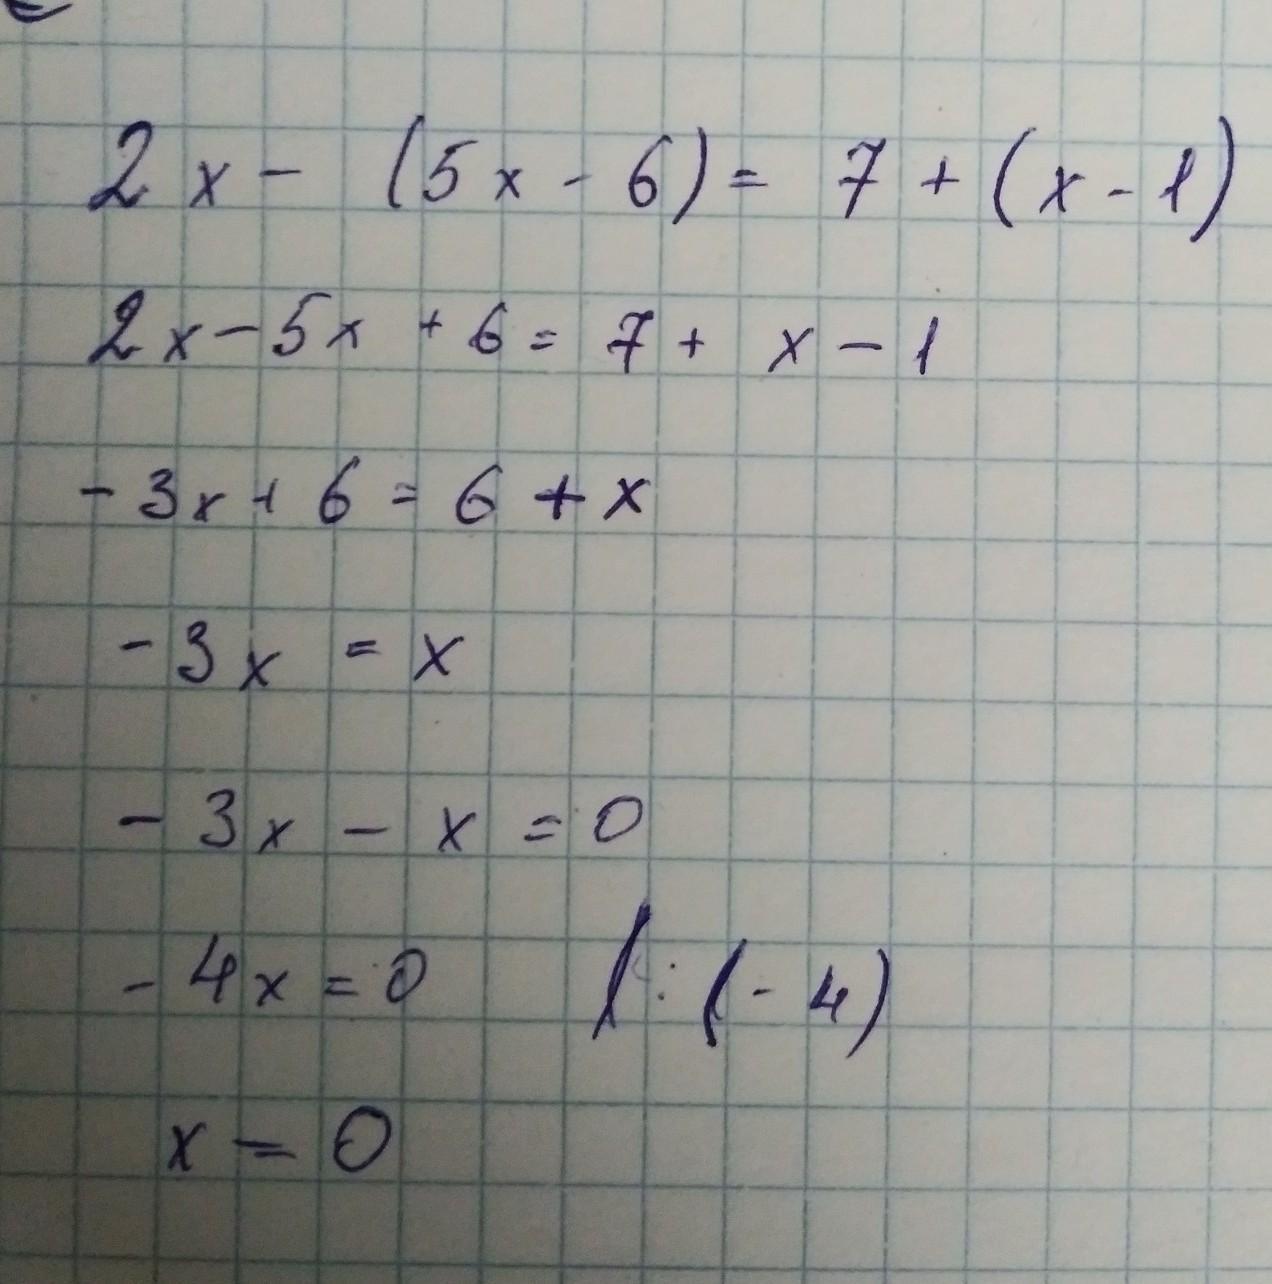 2x - (5x - 6) = 7 + (x - 1)
2x - 5x + 6 = 7 + x - 1
- 3x + 6 = 6 + x
- 3x = x
- 3x - x = 0
- 4x = 0 /: (- 4)
x = 0